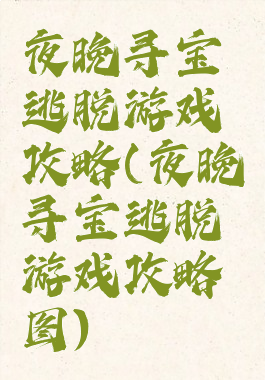 夜晚寻宝
逃脱游戏
攻略(夜晚
寻宝逃脱
游戏攻略
图)